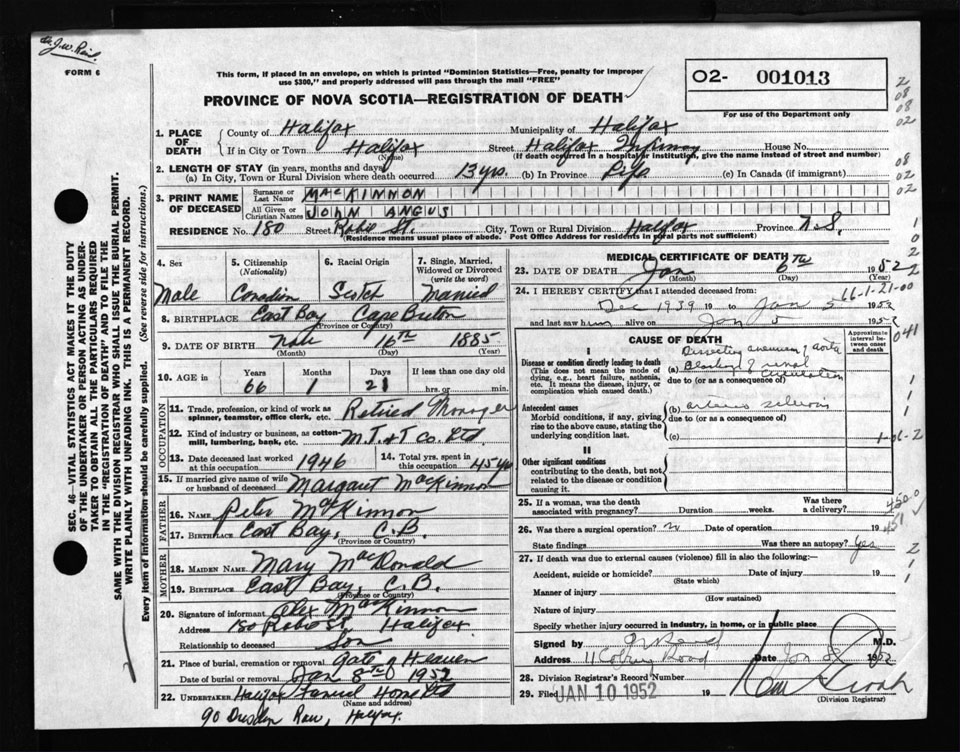 FORM 6
This form, if placed in an envelope, on which is printed "Dominion Statistics—Free, penalty for improper
use $300," and properly addressed will pass through the mail "FREE"
PROVINCE OF NOVA SCOTIA—REGISTRATION OF DEATH
02- 001013
For use of the Department only
1. PLACE OF DEATH
County of Halifax Municipality of Halifax
If in City or Town Halifax (Name) Street Halifax Infirmary House No.
(If death occurred in a hospital or institution, give the name instead of street and number)
2. LENGTH OF STAY (in years, months and days)
(a) In City, Town or Rural Division where death occurred 13 yrs. (b) In Province Life (c) In Canada (if immigrant)
3. PRINT NAME OF DECEASED
Surname or Last Name MACKINNON
All Given or Christian Names JOHN ANGUS
RESIDENCE No. 180 Street Robie St. City, Town or Rural Division Halifax Province N.S.
(Residence means usual place of abode. Post Office Address for residents in rural parts not sufficient)
SEC. 46—VITAL STATISTICS ACT MAKES IT THE DUTY
OF THE UNDERTAKER OR PERSON ACTING AS UNDER-
TAKER TO OBTAIN ALL THE PARTICULARS REQUIRED
IN THE "REGISTRATION OF DEATH" AND TO FILE THE
SAME WITH THE DIVISION REGISTRAR WHO SHALL ISSUE THE BURIAL PERMIT.
WRITE PLAINLY WITH UNFADING INK. THIS IS A PERMANENT RECORD.
Every item of information should be carefully supplied. (See reverse side for instructions.)
4. Sex
Male
5. Citizenship
(Nationality)
Canadian
6. Racial Origin
Scotch
7. Single, Married,
Widowed or Divorced
(write the word)
Married
8. BIRTHPLACE East Bay Cape Breton
(Province or Country)
9. DATE OF BIRTH 16th 1885
(Month) (Day) (Year)
10. AGE in Years Months Days If less than one day old
66 1 21 hrs. or min.
OCCUPATION
11. Trade, profession, or kind of work as
spinner, teamster, office clerk, etc. Retired Manager
12. Kind of industry or business, as cotton-
mill, lumbering, bank, etc. M.T.&T Co. Ltd
13. Date deceased last worked
at this occupation 1946
14. Total yrs. spent in
this occupation 45 yrs
15. If married give name of wife
or husband of deceased Margaret MacKinnon
FATHER
16. NAME Peter MacKinnon
17. BIRTHPLACE East Bay, C.B.
(Province or Country)
MOTHER
18. MAIDEN NAME Mary MacDonald
19. BIRTHPLACE East Bay, C.B.
(Province or Country)
20. Signature of informant Alex MacKinnon
Address 180 Robie St. Halifax
Relationship to deceased Son
21. Place of burial, cremation or removal Gate of Heaven
Date of burial or removal Jan 8th 1952
22. UNDERTAKER Halifax Funeral Home Ltd
(Name and address)
90 Dresden Row, Halifax.
MEDICAL CERTIFICATE OF DEATH
23. DATE OF DEATH Jan 6th 1952
(Month) (Day)
24. I HEREBY CERTIFY that I attended deceased from:
Dec 1939 19 to Jan 5 1952
and last saw him alive on Jan 5 1952
66-1-21-00
CAUSE OF DEATH
Approximate
interval be-
tween onset
and death
I
Disease or condition directly leading to death
(This does not mean the mode of
dying, e.g., heart failure, asthenia,
etc. It means the disease, injury, or
complication which caused death.)
Dissecting aneurism of aorta
(a) renal
due to (or as a consequence of)
Antecedent causes
Morbid conditions, if any, giving
rise to the above cause, stating the
underlying condition last.
(b) arterio sclerosis
due to (or as a consequence of)
(c)
II
Other significant conditions
contributing to the death, but not
related to the disease or condition
causing it.
25. If a woman, was the death
associated with pregnancy? Duration weeks. Was there
a delivery?
26. Was there a surgical operation? Date of operation 19
State findings Was there an autopsy? Yes
27. If death was due to external causes (violence) fill in also the following:—
Accident, suicide or homicide? Date of injury 19
(State which)
Manner of injury
(How sustained)
Nature of injury
Specify whether injury occurred in industry, in home, or in public place
Signed by M.D.
Address Date Jan 1952
28. Division Registrar's Record Number
29. Filed JAN 10 1952 19
(Division Registrar)